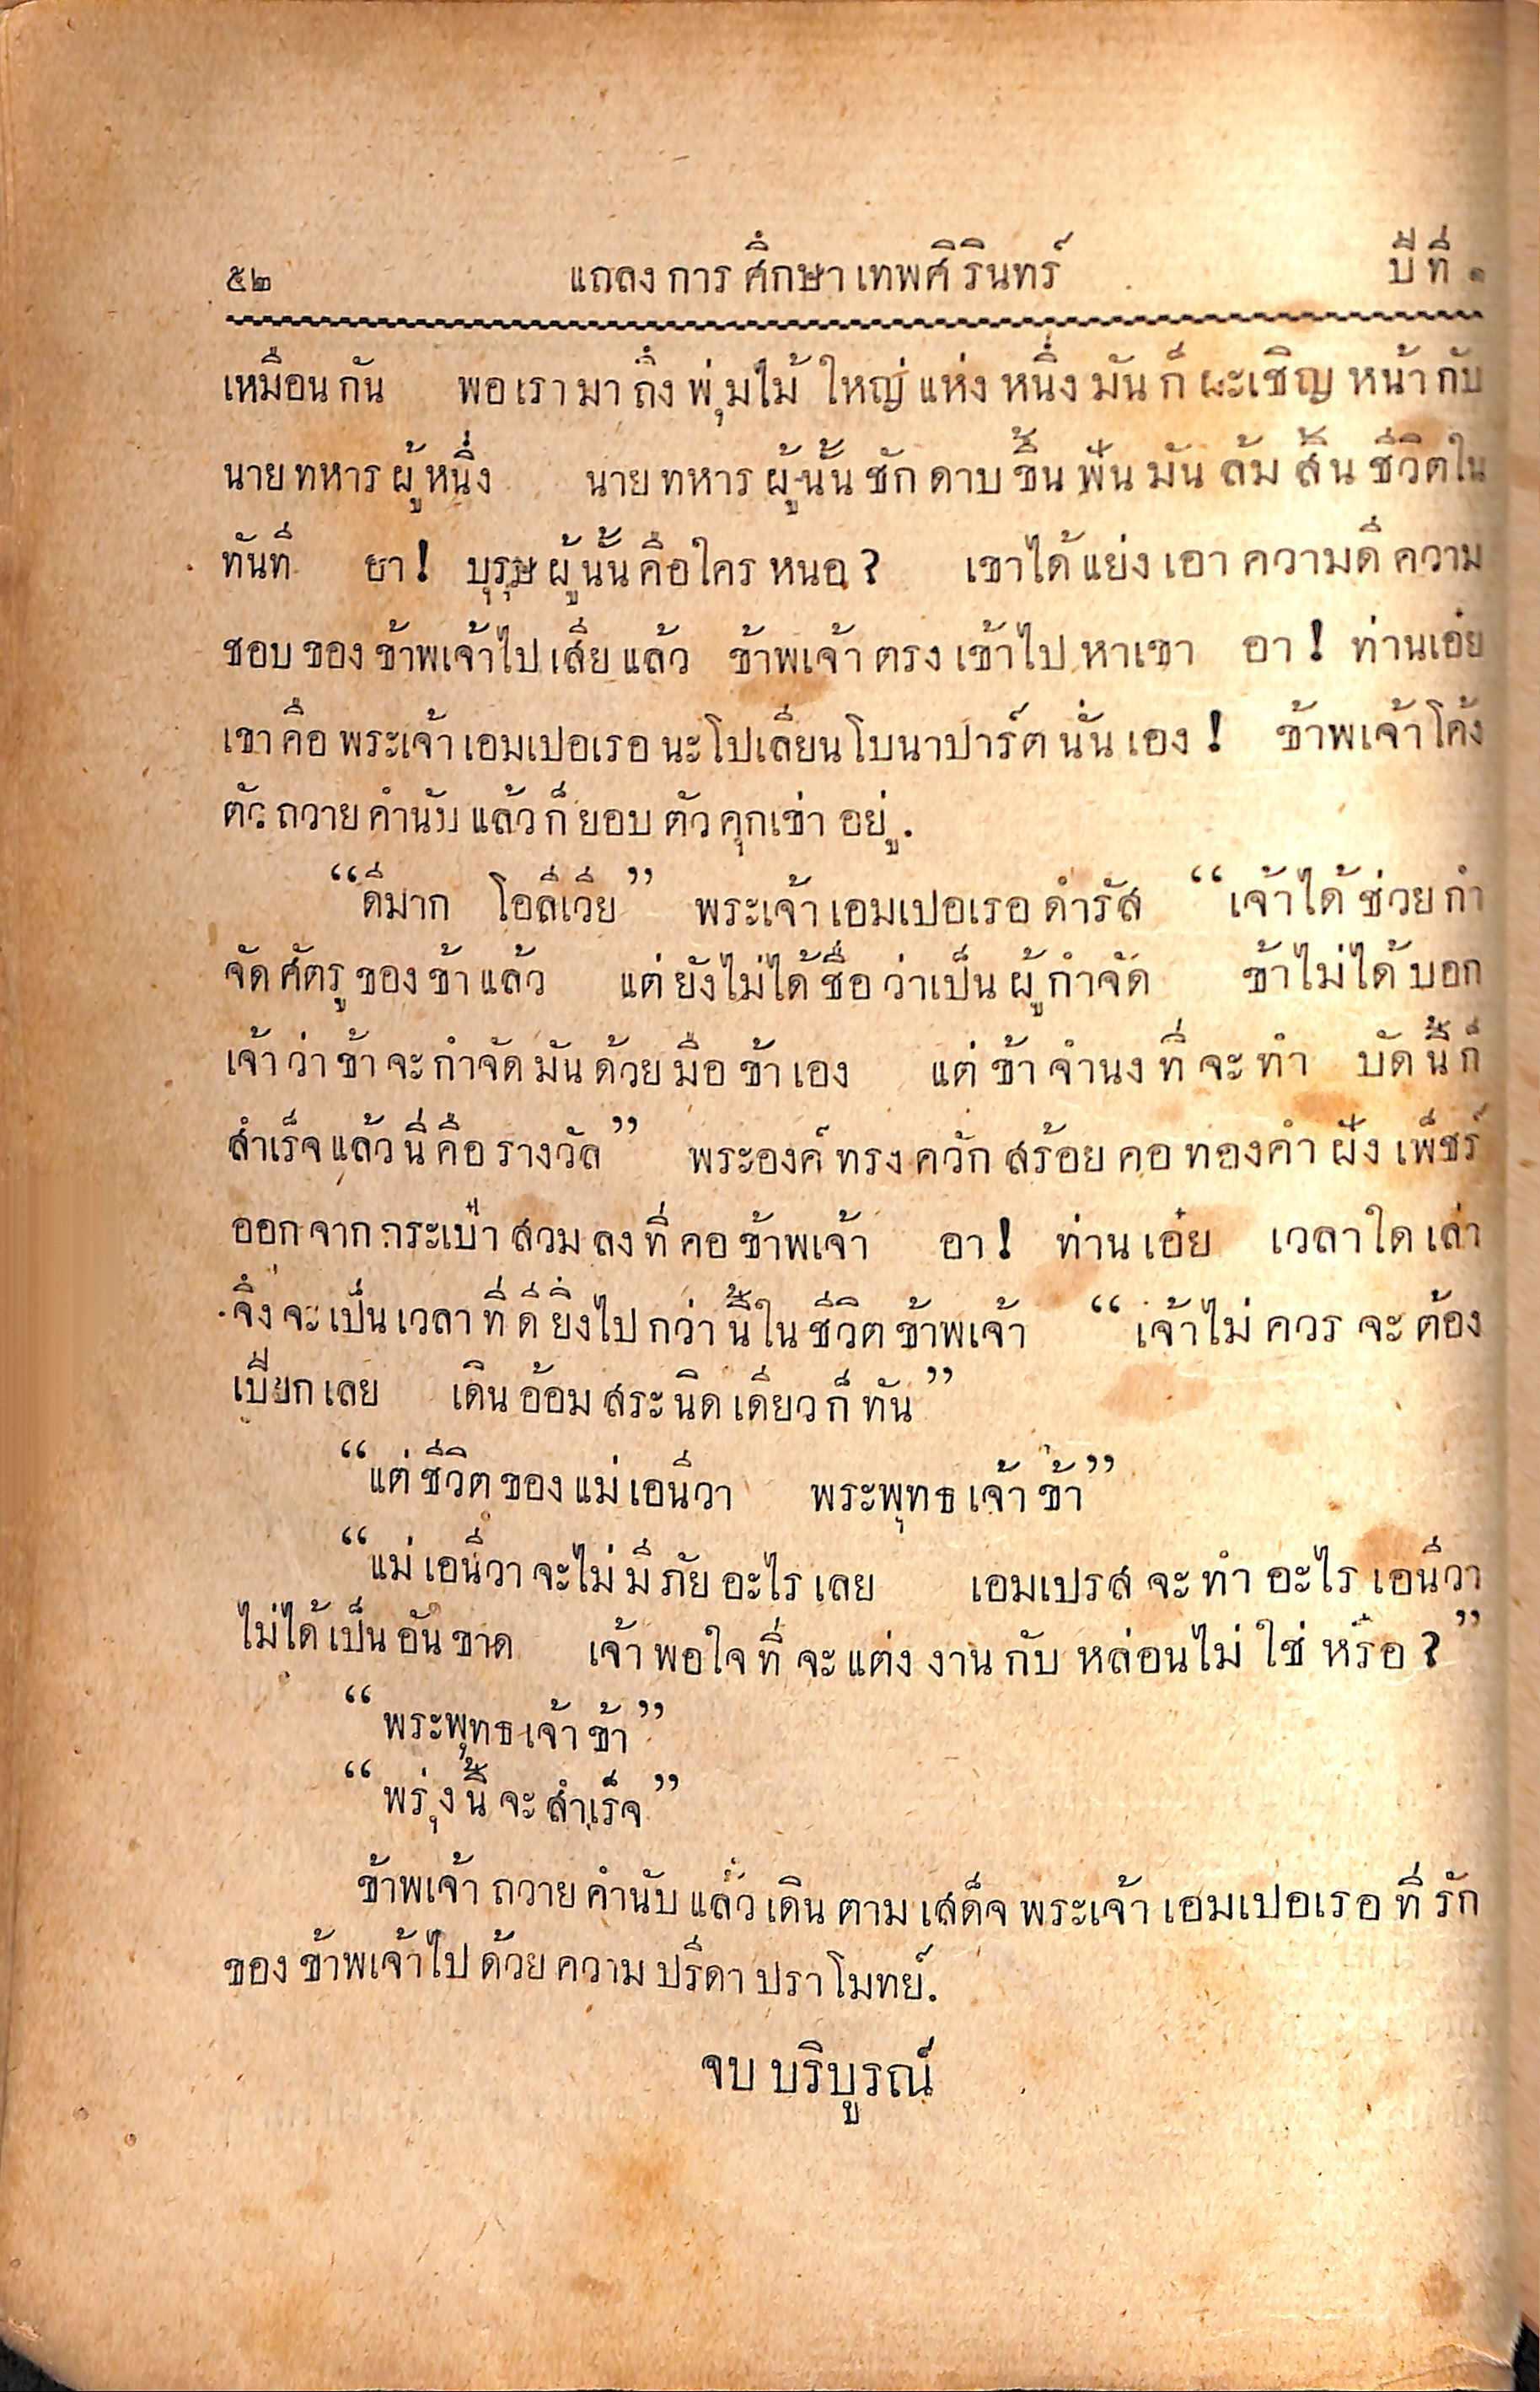 ๕๒ แถลงการศึกษาเทพศิรินทร์ ปีที่ ๑
เหมือนกัน พอเรามาถึงพุ่มไม้ใหญ่แห่งหนึ่งมันก็ผะเชิญหน้ากับ
นายทหารผู้หนึ่ง นายทหารผู้นั้นชักดาบขึ้นฟันมันล้มสิ้นชีวิตใน
ทันที ฮา! บุรุษผู้นั้นคือใครหนอ? เขาได้แย่งเอาความดีความ
ชอบของข้าพเจ้าไปเสียแล้ว ข้าพเจ้าตรงเข้าไปหาเขา อา! ท่านเอ๋ย
เขาคือพระเจ้าเอมเปอเรอนะโปเลียนโบนาปาร์ตนั่นเอง! ข้าพเจ้าโค้ง
ตัวถวายคำนับแล้วก็ยอบตัวคุกเข่าอยู่.
“ดีมาก โอลีเวีย” พระเจ้าเอมเปอเรอดำรัส “เจ้าได้ช่วยกำ
จัดศัตรูของข้าแล้ว แต่ยังไม่ได้ชื่อว่าเป็นผู้กำจัด ข้าไม่ได้บอก
เจ้าว่าข้าจะกำจัดมันด้วยมือข้าเอง แต่ข้าจำนงที่จะทำ บัดนี้ก็
สำเร็จแล้วนี่คือรางวัล” พระองค์ทรงควักสร้อยคอทองคำฝังเพ็ชร์
ออกจากกระเป๋าสวมลงที่คอข้าพเจ้า อา! ท่านเอ๋ย เวลาใดเล่า
จึ่งจะเป็นเวลาที่ดียิ่งไปกว่านี้ในชีวิตข้าพเจ้า “เจ้าไม่ควรจะต้อง
เปียกเลย เดินอ้อมสระนิดเดียวก็ทัน”
“แต่ชีวิตของแม่เอนีวา พระพุทธเจ้าข้า”
“แม่เอนีวาจะไม่มีภัยอะไรเลย เอมเปรสจะทำอะไรเอนีวา
ไม่ได้เป็นอันขาด เจ้าพอใจที่จะแต่งงานกับหล่อนไม่ใช่หรือ?”
“พระพุทธเจ้าข้า”
“พรุ่งนี้จะสำเร็จ”
ข้าพเจ้าถวายคำนับแล้วเดินตามเสด็จพระเจ้าเอมเปอเรอที่รัก
ของข้าพเจ้าไปด้วยความปรีดาปราโมทย์.
จบบริบูรณ์